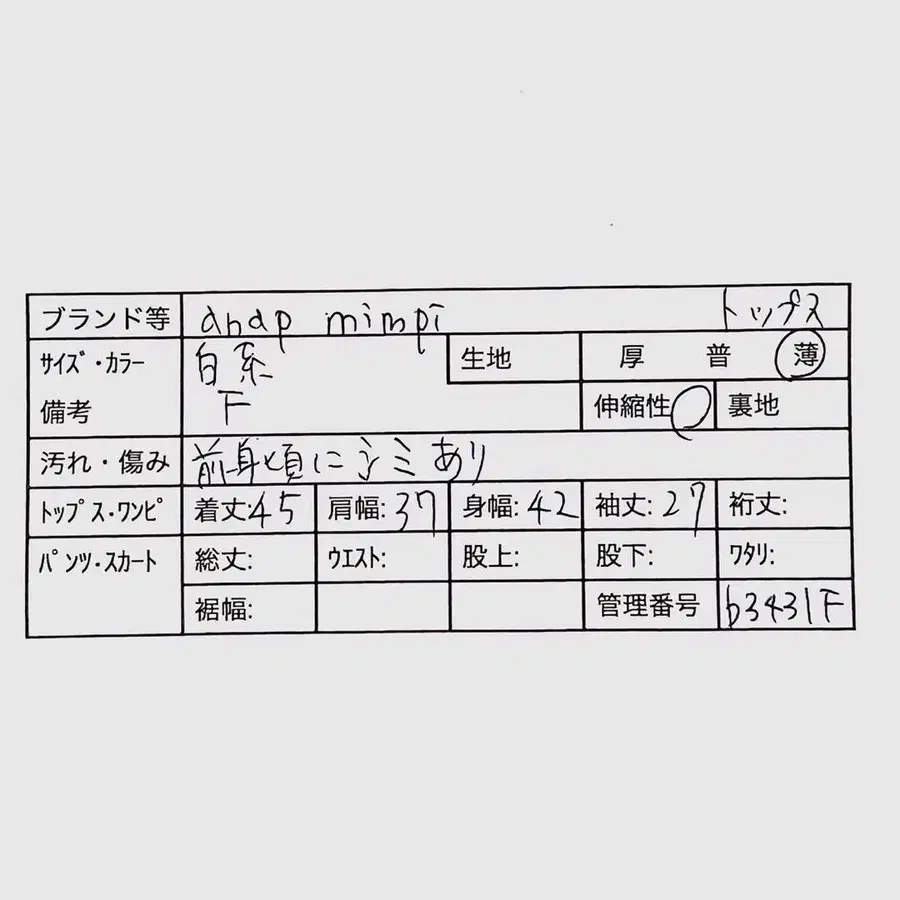 ブランド等 anap mimpi トップス
サイズ・カラー 白系 生地 厚 普 薄
備考 F 伸縮性 裏地
汚れ・傷み 前身頃にシミあり
トップス・ワンピ 着丈:45 肩幅:37 身幅:42 袖丈:27 裄丈:
パンツ・スカート 総丈: ウエスト: 股上: 股下: ワタリ:
裾幅: 管理番号 b3431F